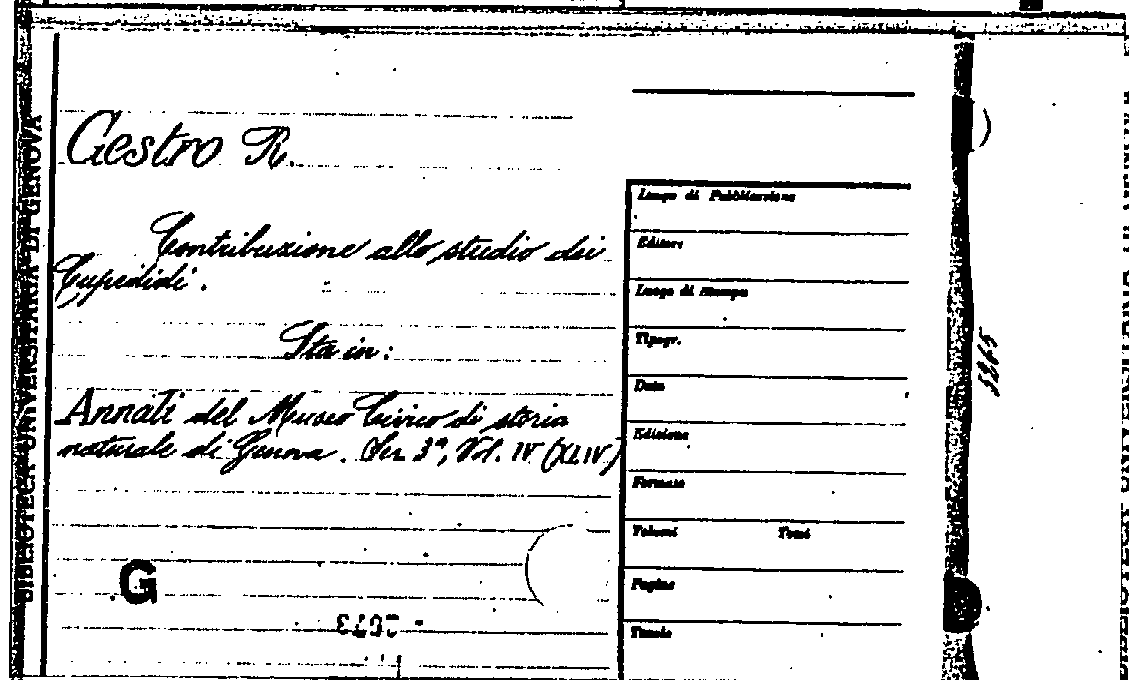 Gestro R.
Contribuzione allo studio dei
Cupedidi.
Sta in:
Annali del Museo Civico di storia
naturale di Genova. Ser. 3ª, Vol. IV (XLIV)
G
Luogo di Pubblicazione
Editore
Luogo di stampa
Tipogr.
Data
Edizione
Formato
Volumi Tomi
Pagine
Titolo
BIBLIOTECA UNIVERSITARIA DI GENOVA